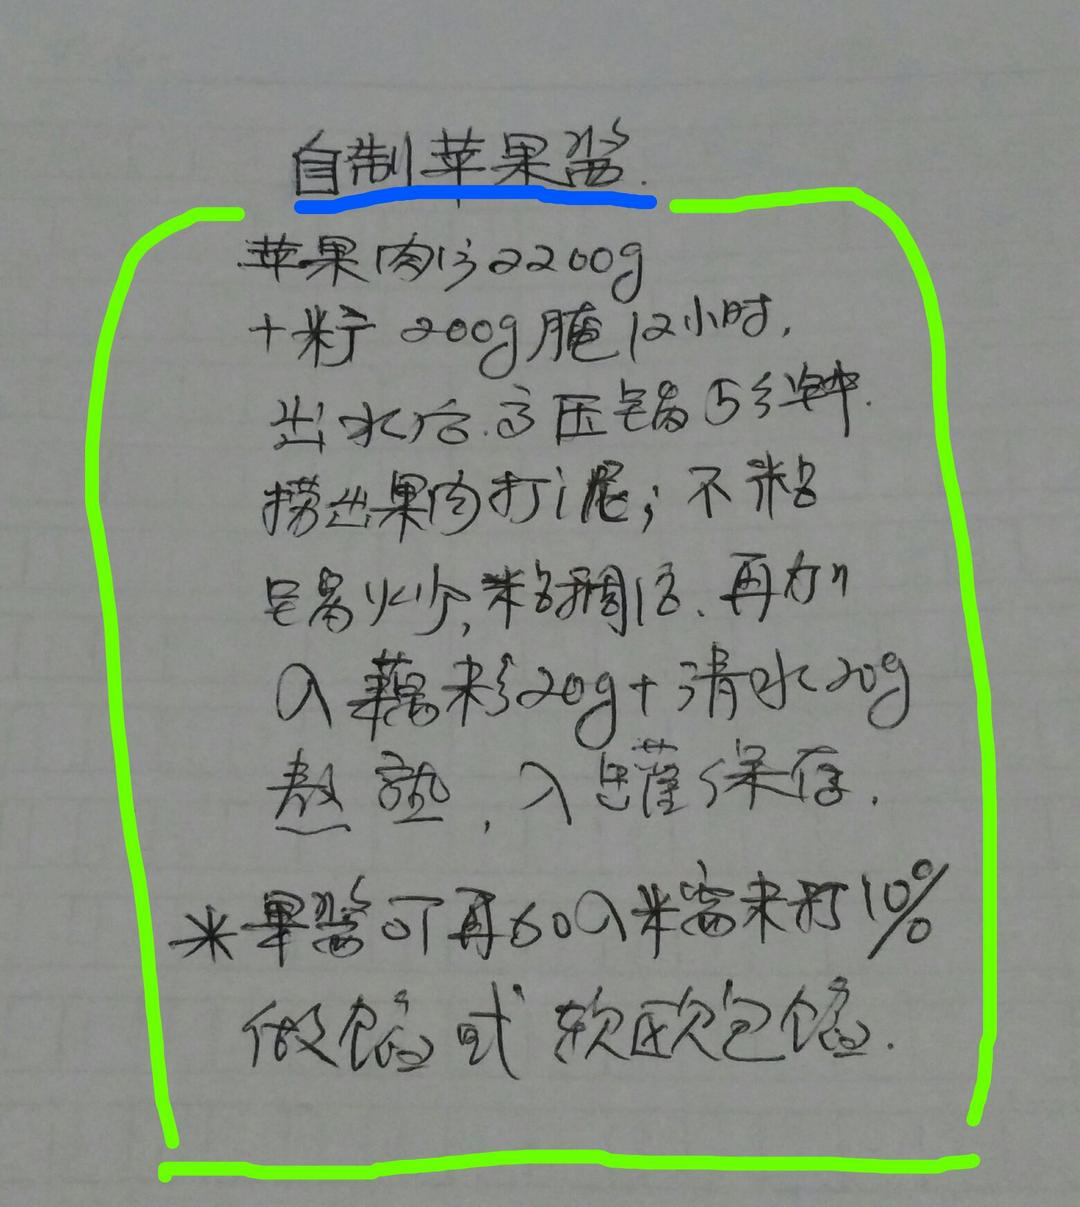 自制苹果酱.
苹果肉 2200g
+ 200g腌12小时,
出水后.高压锅5分钟.
捞出果肉打泥;不粘
锅炒,粘稠 .再加
入藕粉20g+清水20g
熬熟,入罐保存.
*果酱可再加入 10%
做馅或软欧包馅.